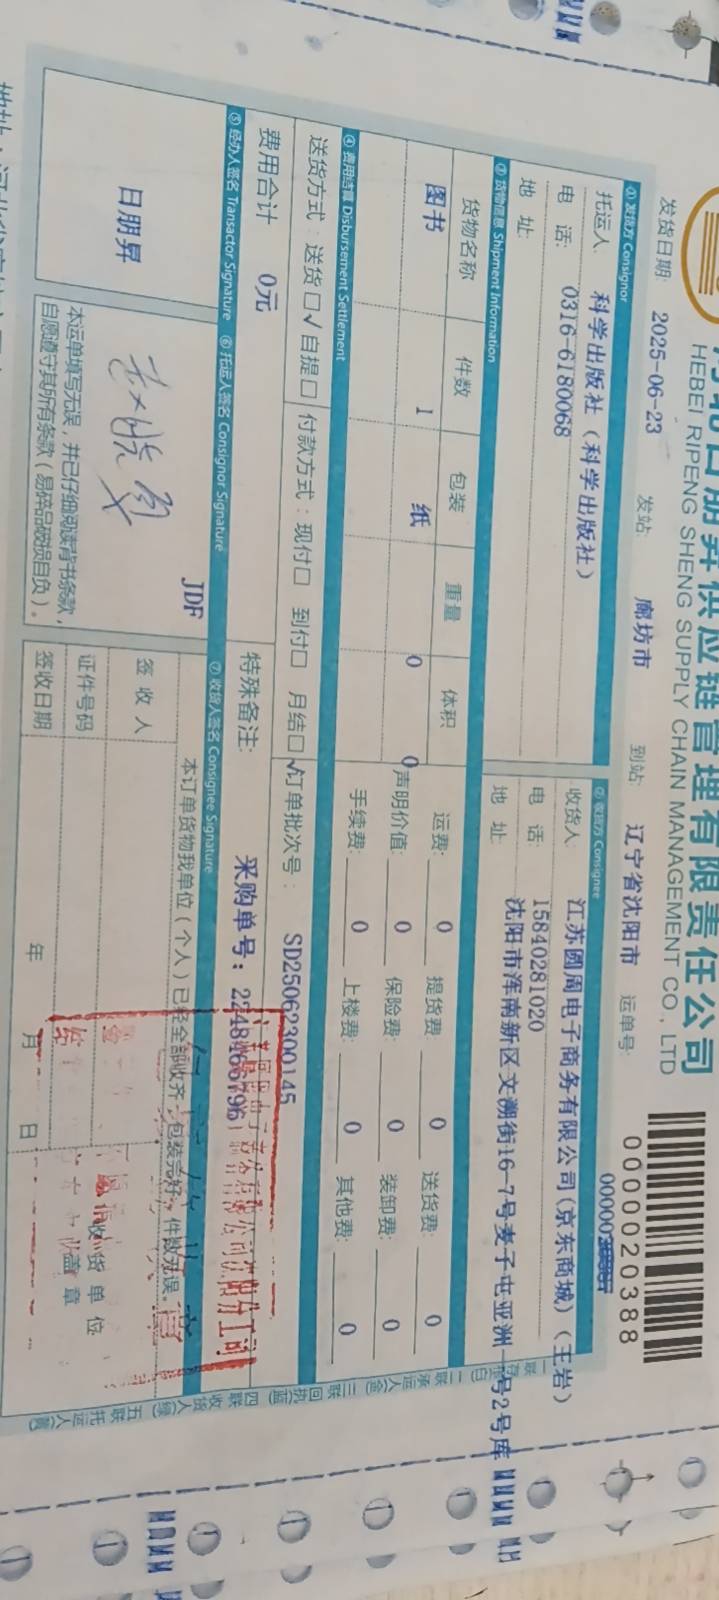 河北日朋昇供应链管理有限责任公司
HEBEI RIPENG SHENG SUPPLY CHAIN MANAGEMENT CO., LTD
0000020388
发货日期: 2025-06-23 发站: 廊坊市 到站: 辽宁省沈阳市 运单号:
① 发货方 Consignor ② 收货方 Consignee
托运人: 科学出版社（科学出版社） 收货人: 江苏圆周电子商务有限公司(京东商城)（王岩）
电 话: 0316-6180068 电 话: 15840281020
地 址: 地 址: 沈阳市浑南新区文溯街16-7号麦子屯亚洲 号2号库
③ 货物信息 Shipment Information
货物名称 件数 包装 重量 体积 运费: 0 提货费: 0 送货费: 0
图书 1 纸 0 0 声明价值: 0 保险费: 0 装卸费: 0
手续费: 0 上楼费: 0 其他费: 0
④ 费用结算 Disbursement Settlement
送货方式: 送货□√ 自提□ 付款方式: 现付□ 到付□ 月结□√ 订单批次号: SD25062300145
费用合计 0元 特殊备注: 采购单号:
⑤ 经办人签名 Transactor Signature ⑥ 托运人签名 Consignor Signature ⑦ 收货人签名 Consignee Signature
JDF
日朋昇
本运单填写无误，并已仔细阅读背书条款，
自愿遵守其所有条款（易碎品破损自负）。
本订单货物我单位（个人）已经全部收齐，包装完好，件数无误。
签 收 人
证件号码
签收日期 年 月 日
收货单位
盖 章